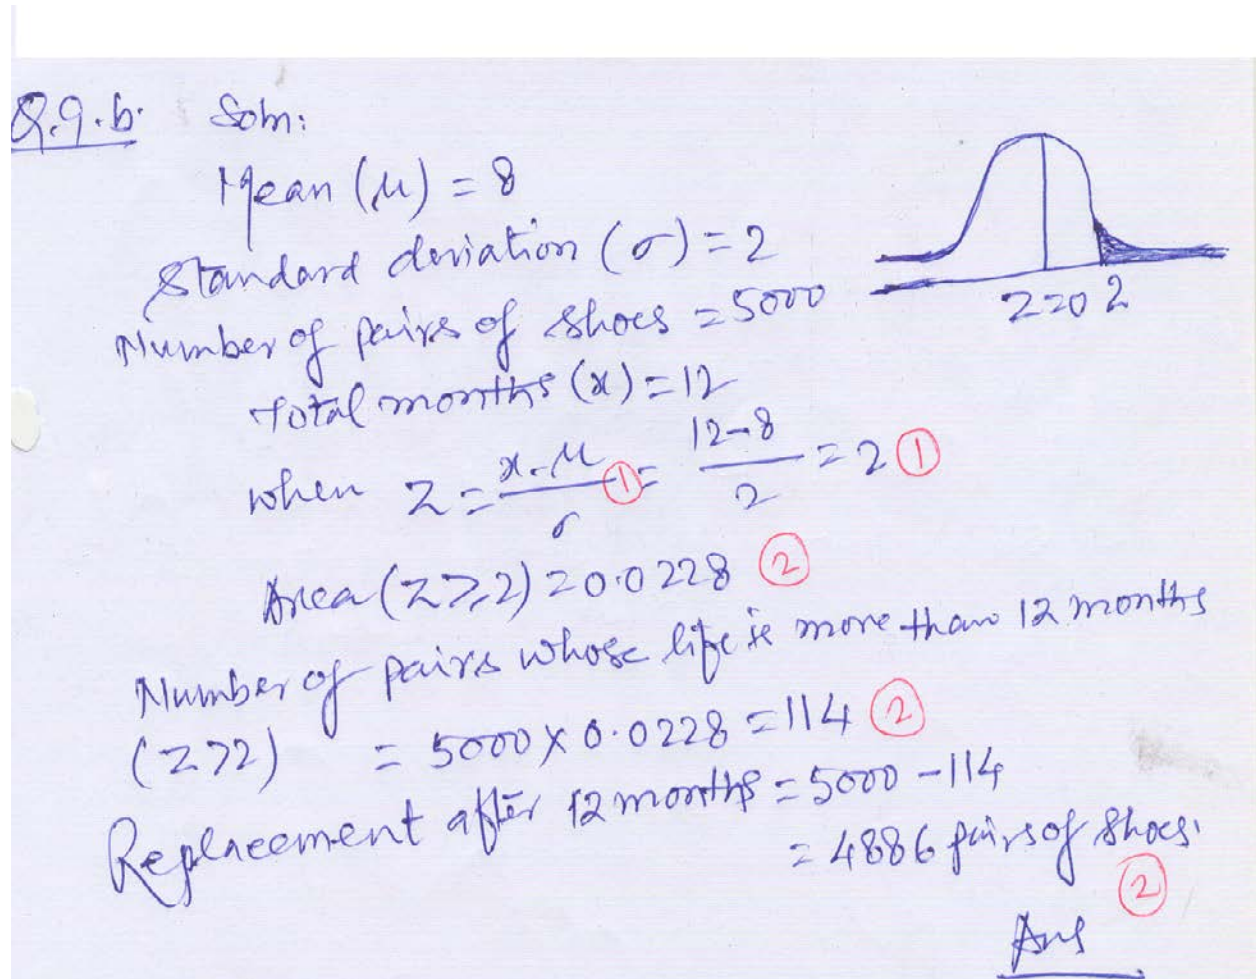 Q.9.b. Soln:
Mean (μ) = 8
Standard deviation (σ) = 2
Z=0 2
Number of pairs of shoes = 5000
Total months (x) = 12
when Z = x-μ/σ ① = 12-8/2 = 2 ①
Area (Z⩾2) = 0.0228 ②
Number of pairs whose life is more than 12 months
(Z>2) = 5000 × 0.0228 = 114 ②
Replacement after 12 months = 5000 - 114
= 4886 pairs of shoes.
②
Ans